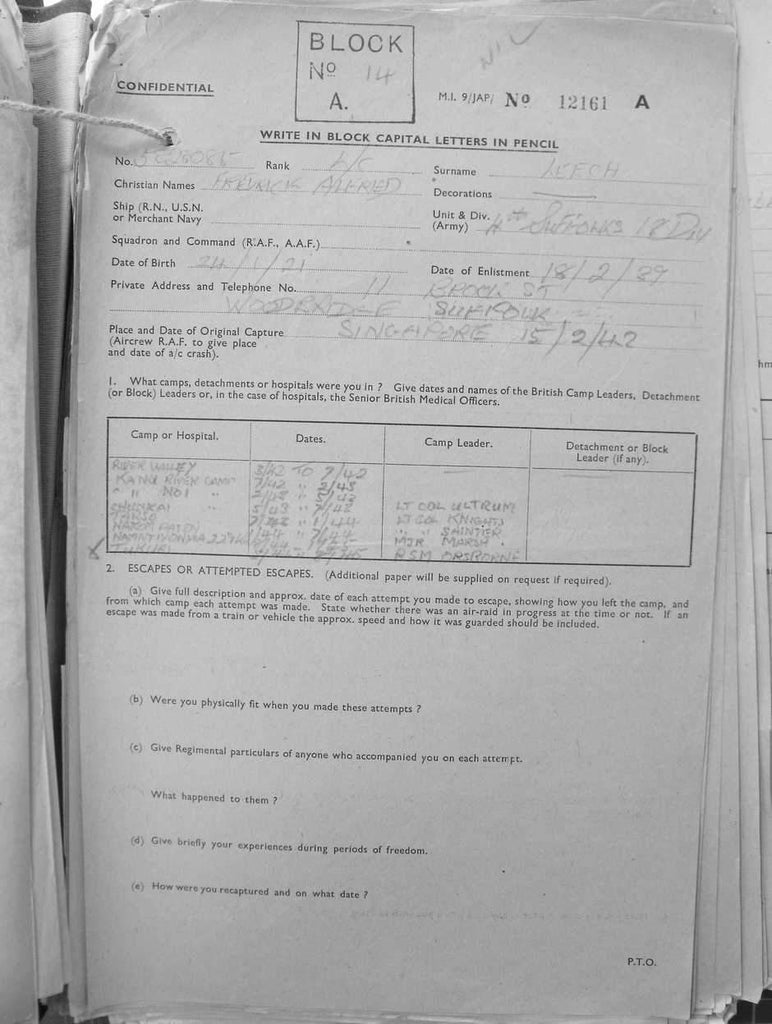 BLOCK
No 14
A.
NIL
CONFIDENTIAL
M.I. 9/JAP/ No 12161 A
WRITE IN BLOCK CAPITAL LETTERS IN PENCIL
No. Rank L/C Surname LEECH
Christian Names ALFRED Decorations
Ship (R.N., U.S.N.
or Merchant Navy
Unit & Div.
(Army) 4th SUFFOLKS 18 DIV
Squadron and Command (R.A.F., A.A.F.)
Date of Birth 24/1/21 Date of Enlistment 18/2/39
Private Address and Telephone No. 11 BROOK ST
WOODBRIDGE SUFFOLK
Place and Date of Original Capture SINGAPORE 15/2/42
(Aircrew R.A.F. to give place
and date of a/c crash).
1. What camps, detachments or hospitals were you in ? Give dates and names of the British Camp Leaders, Detachment
(or Block) Leaders or, in the case of hospitals, the Senior British Medical Officers.
Camp or Hospital. Dates. Camp Leader. Detachment or Block
Leader (if any).
RIVER VALLEY 3/42 TO 7/42
KANU RIVER CAMP
" " NO1
CHUNKAI LT COL ULTRUM
LT COL KNIGHTS
" " SAINTER
MJR MARSH
RSM OSBORNE
2. ESCAPES OR ATTEMPTED ESCAPES. (Additional paper will be supplied on request if required).
(a) Give full description and approx. date of each attempt you made to escape, showing how you left the camp, and
from which camp each attempt was made. State whether there was an air-raid in progress at the time or not. If an
escape was made from a train or vehicle the approx. speed and how it was guarded should be included.
(b) Were you physically fit when you made these attempts ?
(c) Give Regimental particulars of anyone who accompanied you on each attempt.
What happened to them ?
(d) Give briefly your experiences during periods of freedom.
(e) How were you recaptured and on what date ?
P.T.O.